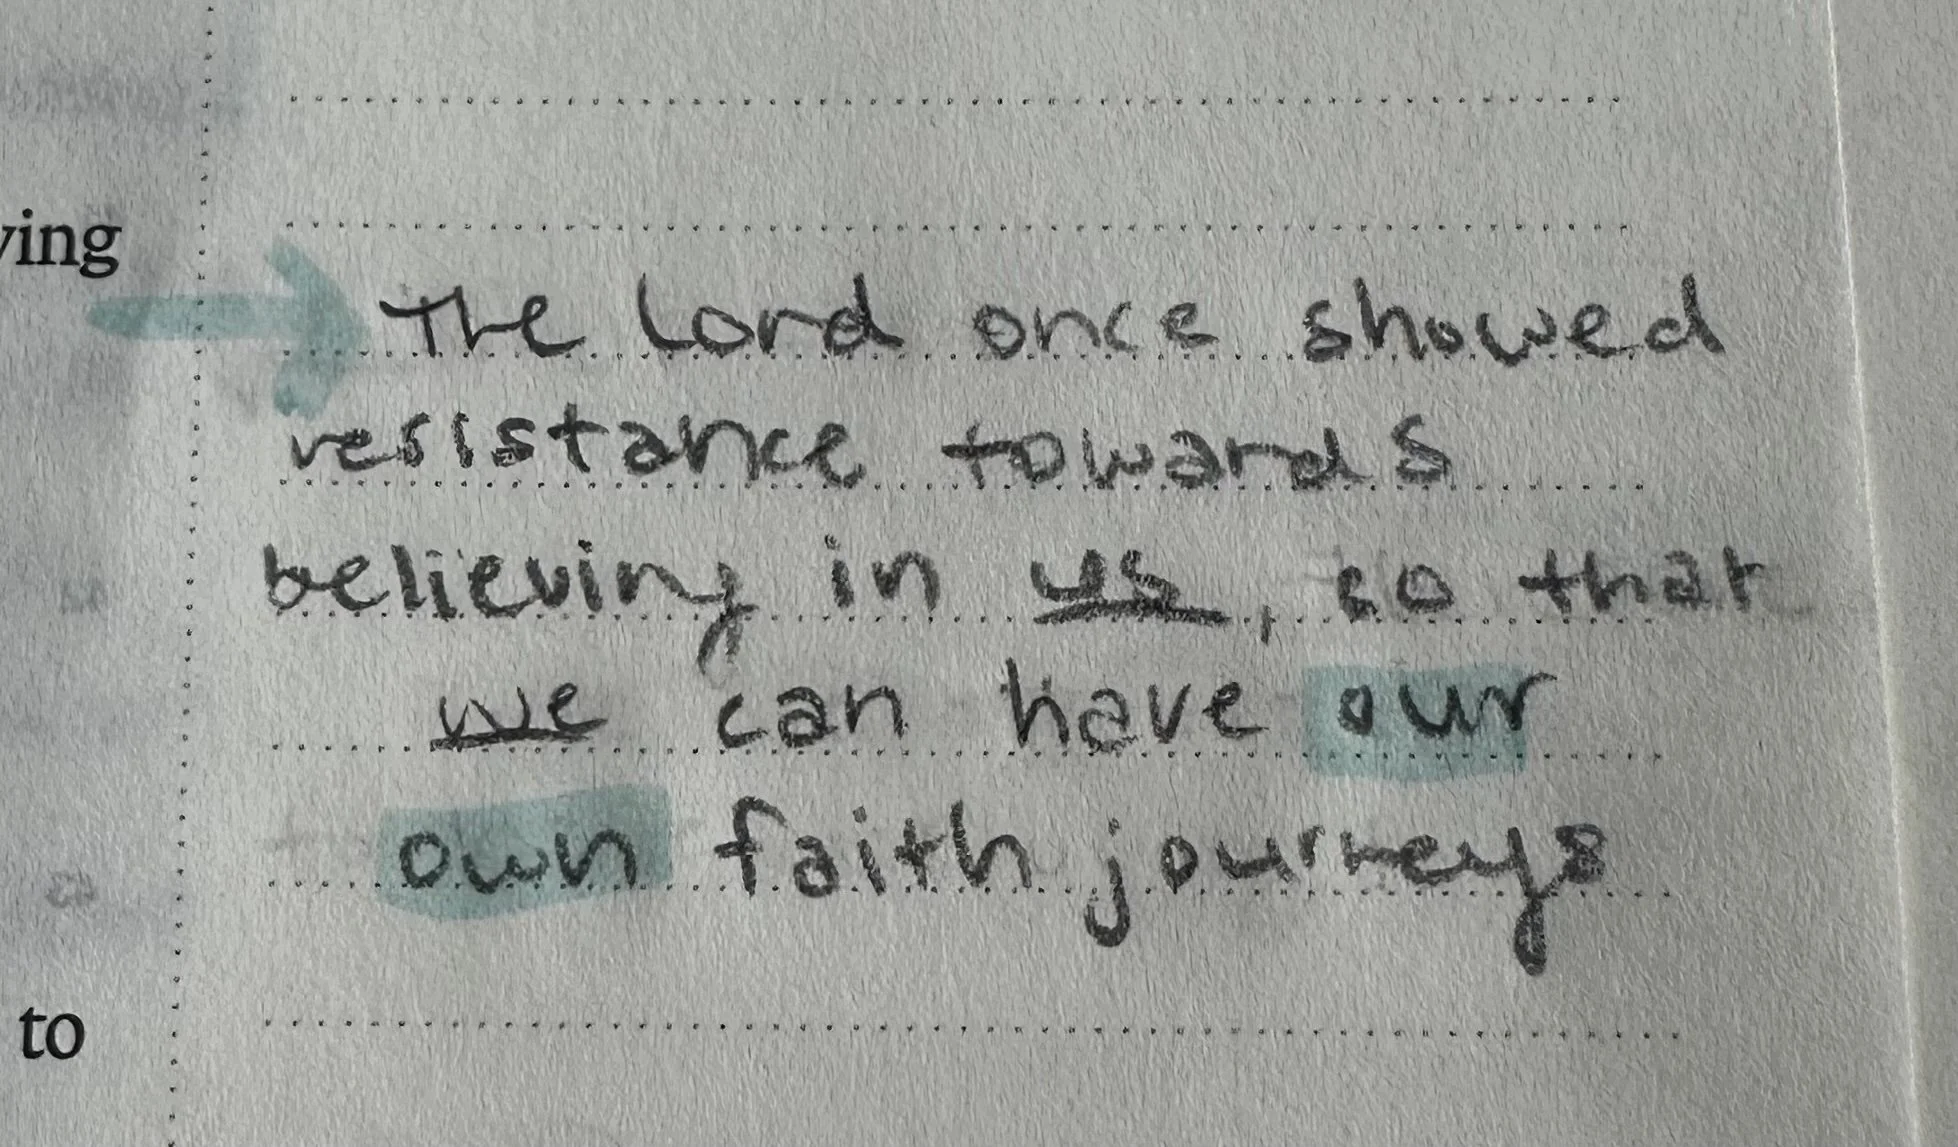 ving
The Lord once showed
resistance towards
believing in us, so that
we can have our
own faith journeys
to